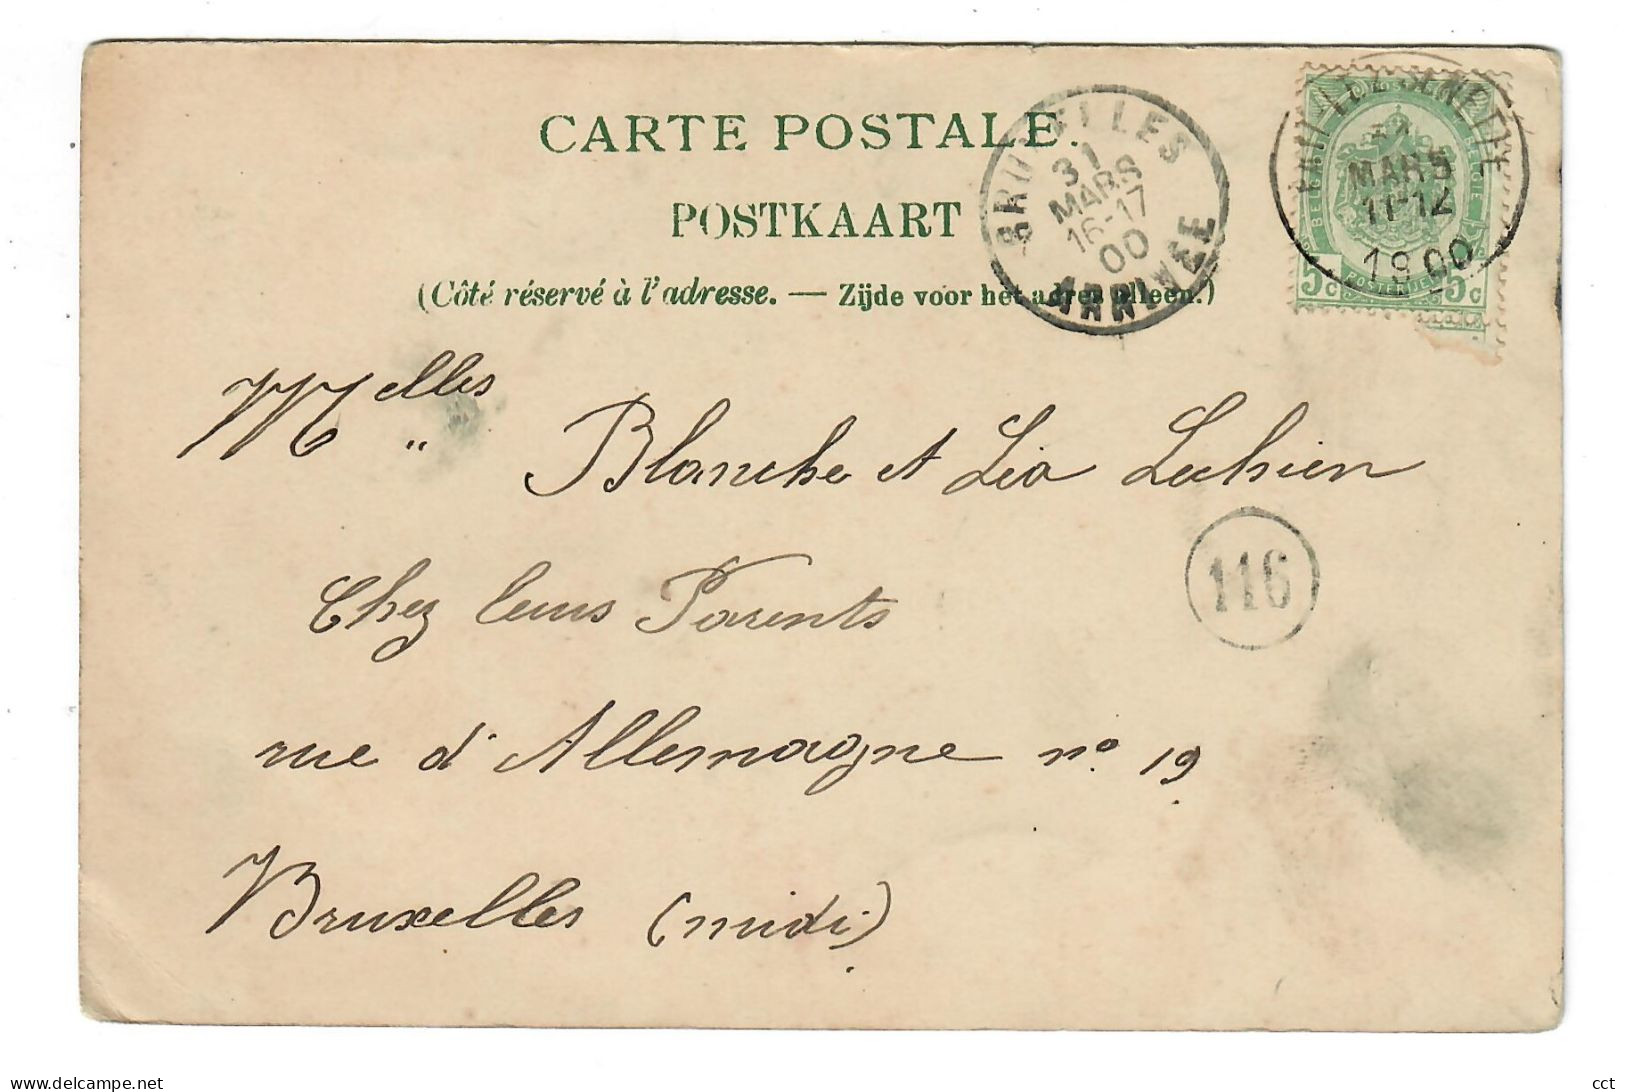 CARTE POSTALE.
POSTKAART
(Côté réservé à l'adresse. — Zijde voor het adres alleen.)
BRUXELLES
31
MARS
16-17
00
ARRIVEE
MARS
11-12
1900
5c POSTERIJEN 5c
Melles Blanche et Léa Lechien
116
Chez leurs Parents
rue d'Allemagne no 19
Bruxelles (midi)
www.delcampe.net
cct